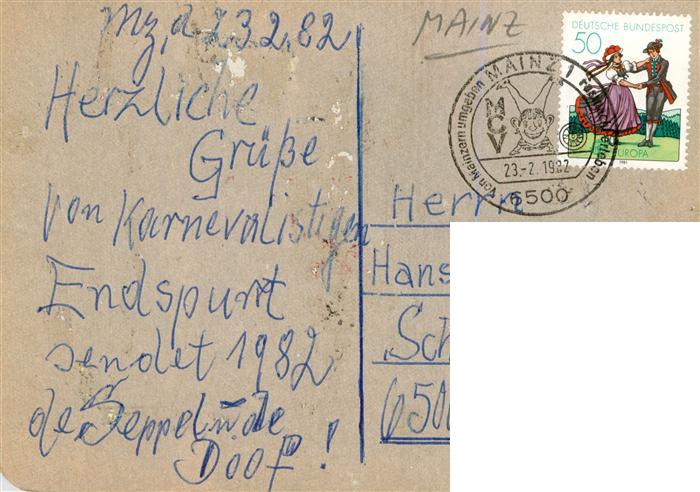 Mz, d 23.2.82
Herzliche
Grüße
von Karnevalistigen
Endspurt
sendet 1982
de Seppel u de
Doof!
MAINZ
DEUTSCHE BUNDESPOST
50
EUROPA
1981
MAINZ 1
von Mainzern umgeben
MCV
23.-2.1982
6500
Herrn
Hans
Sch
650